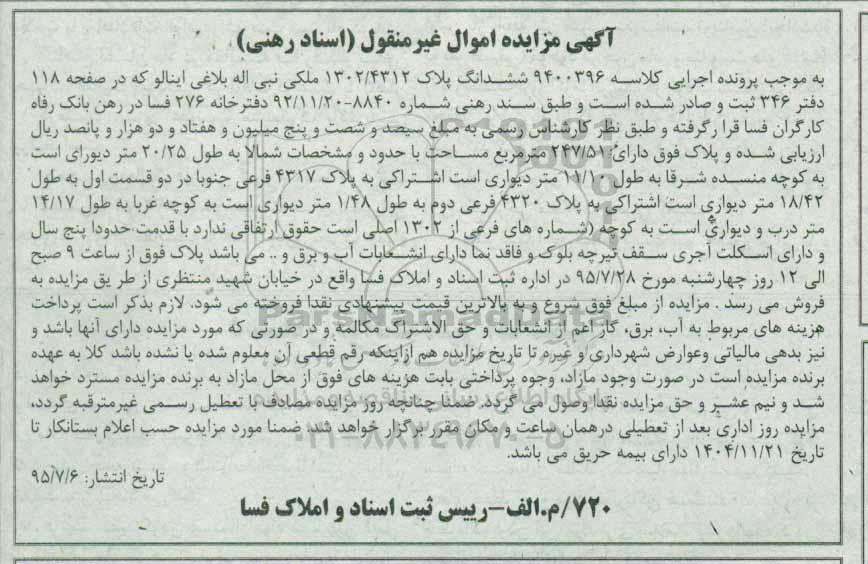 آگهی مزایده اموال غیرمنقول (اسناد رهنی)
به موجب پرونده اجرایی کلاسه ۹۴۰۰۳۹۶ ششدانگ پلاک ۱۳۰۲/۴۳۱۲ ملکی نبی اله بلاغی اینالو که در صفحه ۱۱۸
دفتر ۳۴۶ ثبت و صادر شده است و طبق سند رهنی شماره ۸۸۴۰-۹۲/۱۱/۲۰ دفترخانه ۲۷۶ فسا در رهن بانک رفاه
کارگران فسا قرا رگرفته و طبق نظر کارشناس رسمی به مبلغ سیصد و شصت و پنج میلیون و هفتاد و دو هزار و پانصد ریال
ارزیابی شده و پلاک فوق دارای ۲۴۷/۵۱ مترمربع مساحت با حدود و مشخصات شمالا به طول ۲۰/۲۵ متر دیورای است
به کوچه منسده شرقا به طول ۱۱/۱۰ متر دیواری است اشتراکی به پلاک ۴۳۱۷ فرعی جنوبا در دو قسمت اول به طول
۱۸/۴۲ متر دیواری است اشتراکی به پلاک ۴۳۲۰ فرعی دوم به طول ۱/۴۸ متر دیواری است به کوچه غربا به طول ۱۴/۱۷
متر درب و دیواری است به کوچه (شماره های فرعی از ۱۳۰۲ اصلی است حقوق ارتفاقی ندارد با قدمت حدودا پنج سال
و دارای اسکلت آجری سقف تیرچه بلوک و فاقد نما دارای انشعابات آب و برق و .. می باشد پلاک فوق از ساعت ۹ صبح
الی ۱۲ روز چهارشنبه مورخ ۹۵/۷/۲۸ در اداره ثبت اسناد و املاک فسا واقع در خیابان شهید منتظری از طر یق مزایده به
فروش می رسد . مزایده از مبلغ فوق شروع و به بالاترین قیمت پیشنهادی نقدا فروخته می شود. لازم بذکر است پرداخت
هزینه های مربوط به آب، برق، گاز اعم از انشعابات و حق الاشتراک مکالمه و در صورتی که مورد مزایده دارای آنها باشد و
نیز بدهی مالیاتی وعوارض شهرداری و غیره تا تاریخ مزایده هم ازاینکه رقم قطعی آن معلوم شده یا نشده باشد کلا به عهده
برنده مزایده است در صورت وجود مازاد، وجوه پرداختی بابت هزینه های فوق از محل مازاد به برنده مزایده مسترد خواهد
شد و نیم عشر و حق مزایده نقدا وصول می گردد. ضمنا چنانچه روز مزایده مصادف با تعطیل رسمی غیرمترقبه گردد،
مزایده روز اداری بعد از تعطیلی درهمان ساعت و مکان مقرر برگزار خواهد شد. ضمنا مورد مزایده حسب اعلام بستانکار تا
تاریخ ۱۴۰۴/۱۱/۲۱ دارای بیمه حریق می باشد.
تاریخ انتشار: ۹۵/۷/۶
۷۲۰/م.الف-رییس ثبت اسناد و املاک فسا
ParsNamadData
۰۲۱-۸۸۳۴۹۶۷۰-۵